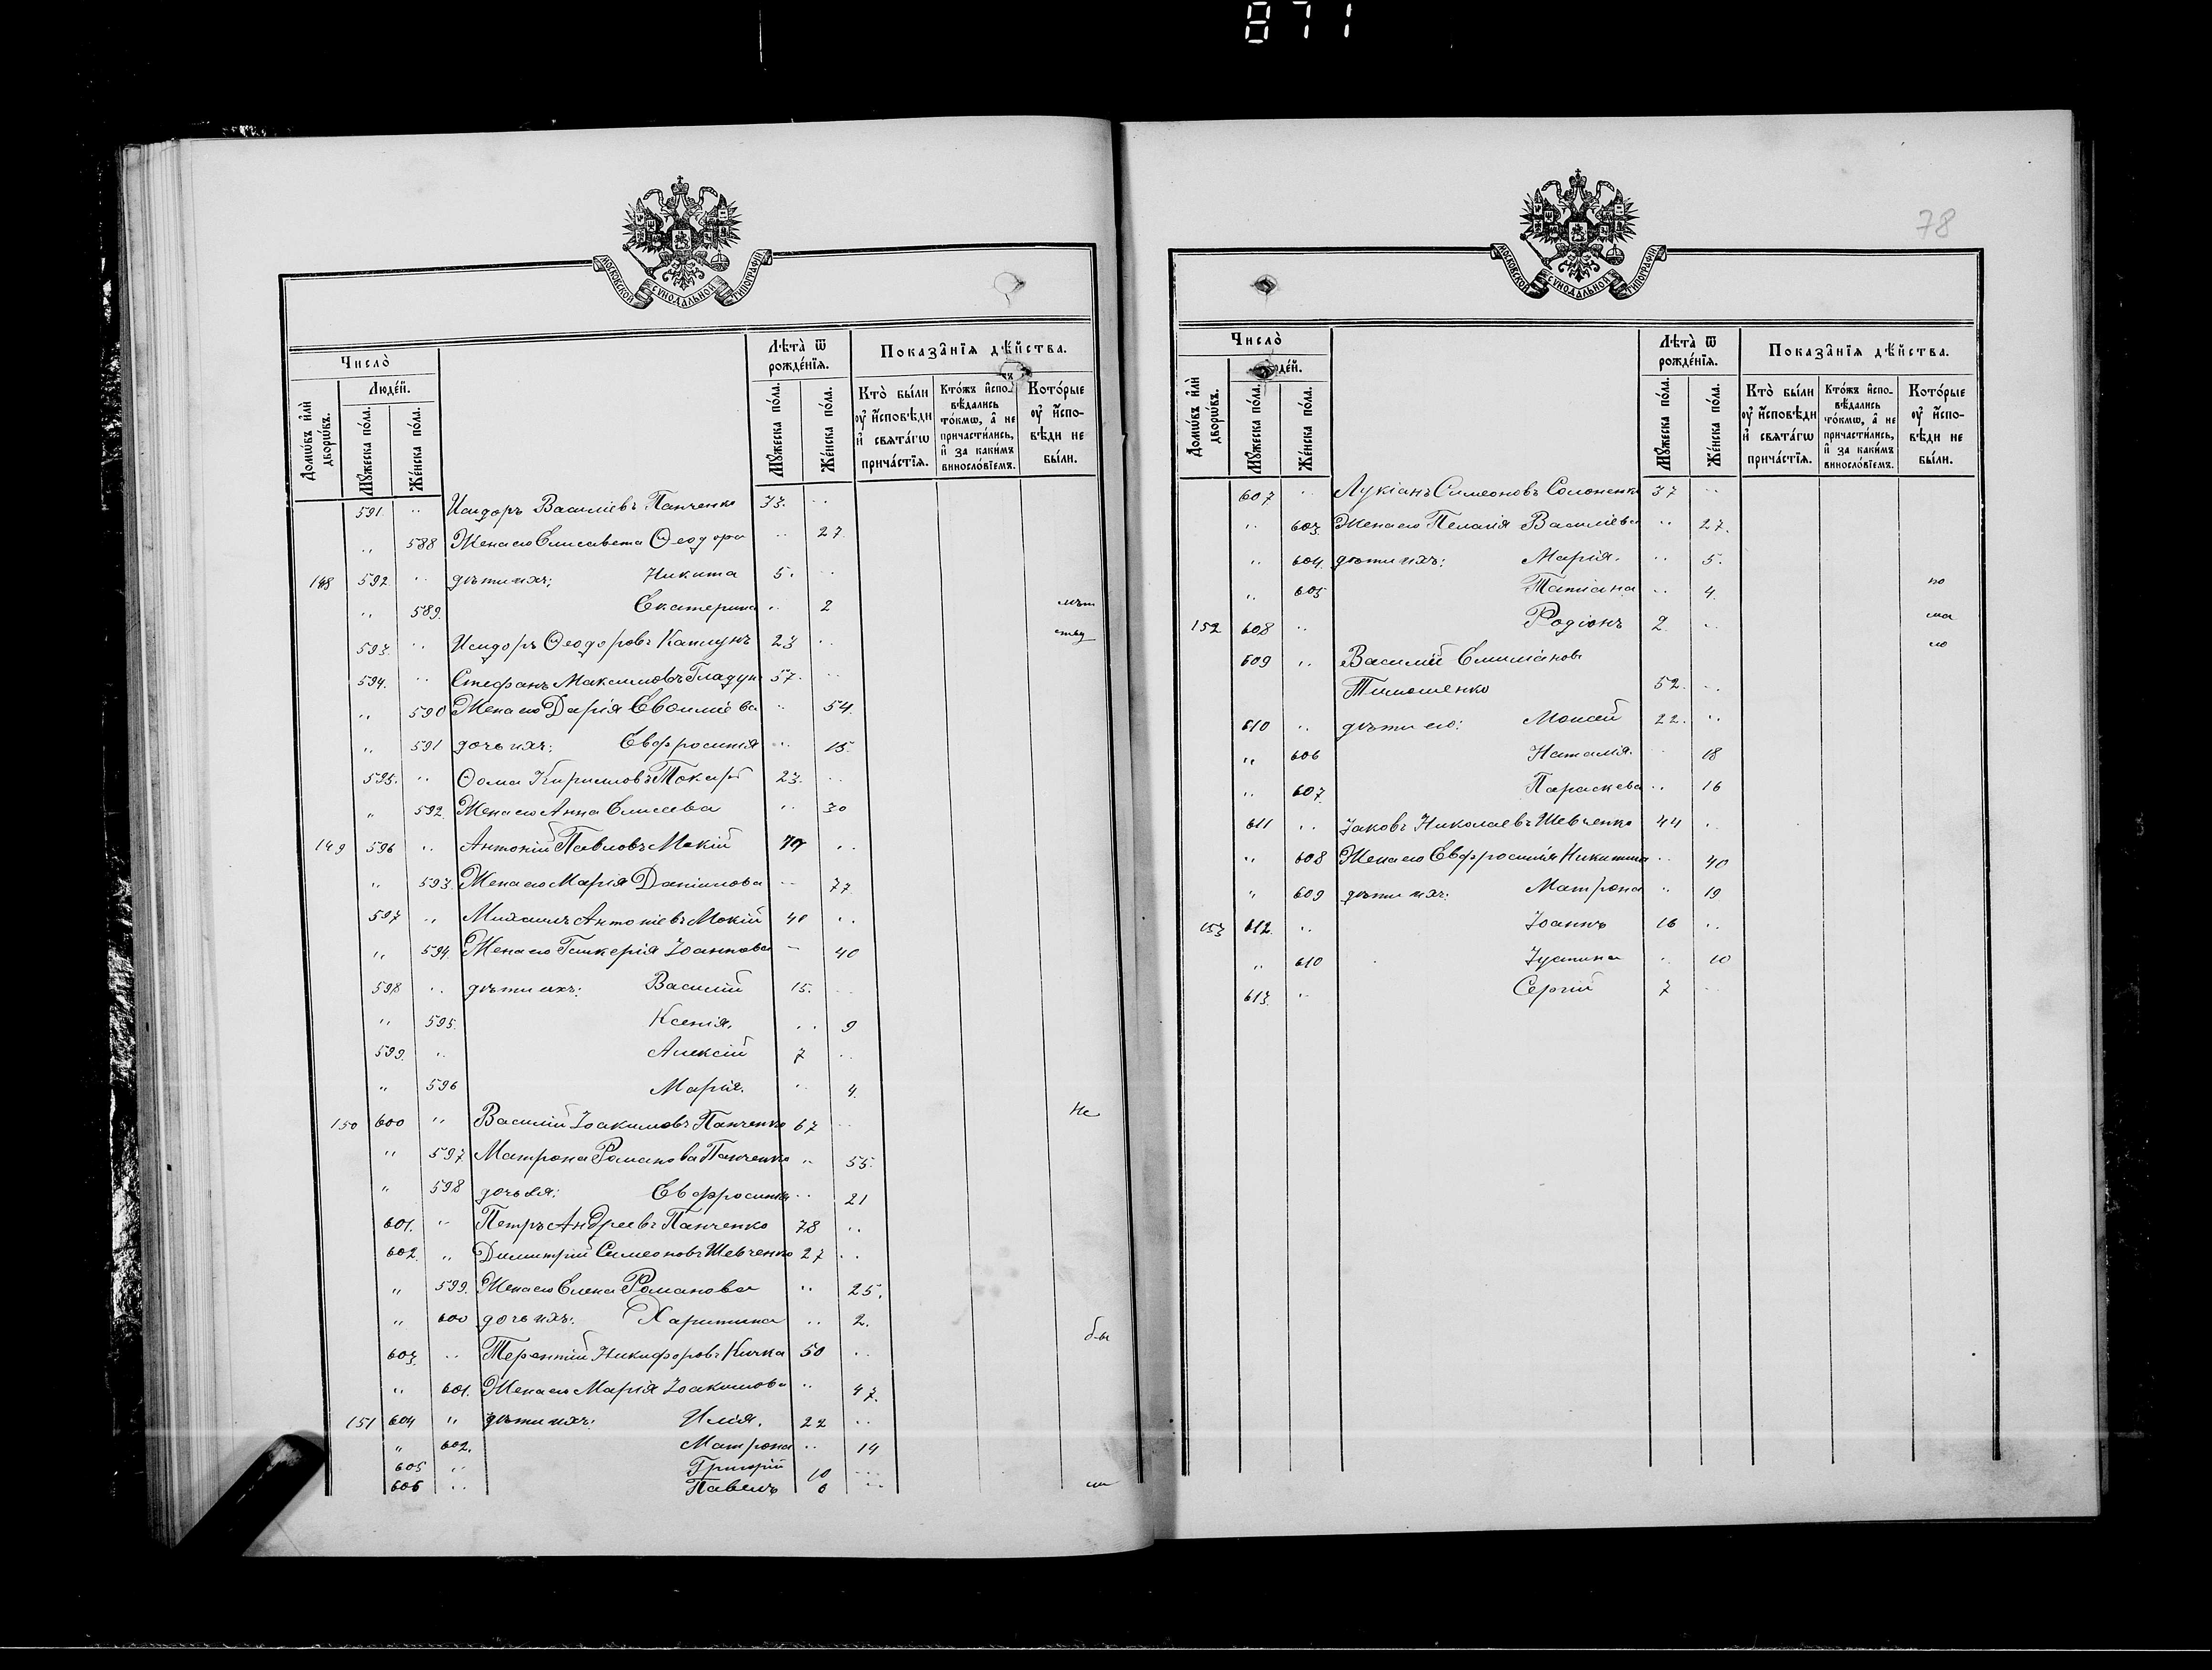 871
МОСКОВСКОЙ СѴНОДАЛЬНОЙ ТИПОГРАФІИ
Число̀
Люде́й.
Домѡ́въ и҆лѝ дворѡ́въ.
Мꙋ́жеска по́ла.
Же́нска по́ла.
Лѣ́та ѿ рожде́нїѧ.
Мꙋ́жеска по́ла.
Же́нска по́ла.
Показа̑нїѧ дѣ́йства.
Кто̀ бы́ли оу҆ и҆́сповѣди и҆ свѧта́гѡ прича́стїѧ.
Кто́жъ и҆спо-вѣ́дались то́кмѡ, а҆ не причасти́лись, и҆ за каки́мъ виносло́вїемъ.
Кото́рые оу҆ и҆́спо-вѣди не бы́ли.
591 " Исидоръ Василіевъ Панченко 33. "
" 588 Жена его Елисавета Ѳеодора " 27.
148 592 " дѣти ихъ: Никита 5. "
" 589. Екатерина " 2
593. " Исидоръ Ѳеодоровъ 23 "
594. " Стефанъ Максимовъ Гладунъ 57. "
" 590 Жена его Дарія " 54.
" 591 дочь ихъ: Евфросинія " 15.
595. " Ѳома Кирилловъ Токарь 23. "
" 592. Жена его Анна Елисеева " 30
149 596 " Антоній Павловъ Мокій "
" 593. Жена его Марія Даніилова " 77.
597 " Михаилъ Антоніевъ Мокій "
" 594. Жена его Гликерія Іоаннова " 40
598 " дѣти ихъ: Василій 15. "
" 595. Ксенія. " 9
599. " Алексій 7 "
" 596 Марія. " 4.
150 600 " Василій Іоакимовъ Панченко 67 "
" 597 Матрона Романова Панченко " 55.
" 598 дочь ея: Евфросинія " 21
601. " Петръ Андреевъ Панченко 78 "
602. " Димитрій Симеоновъ Шевченко 27 "
" 599. Жена его Елена Романова " 25.
" 600 дочь ихъ: Харитина " 2.
603. " Терентій Никифоровъ Кичка 50 "
" 601. Жена его Марія Іоакимова " 47.
151 604 " дѣти ихъ: Илія. 22 "
" 602. Матрона " 14
605 " Григорій 10 "
606 " Павелъ 6 "
Не
бы
78
МОСКОВСКОЙ СѴНОДАЛЬНОЙ ТИПОГРАФІИ
Число̀
Домѡ́въ и҆лѝ дворѡ́въ.
Мꙋ́жеска по́ла.
Же́нска по́ла.
Лѣ́та ѿ рожде́нїѧ.
Мꙋ́жеска по́ла.
Же́нска по́ла.
Показа̑нїѧ дѣ́йства.
Кто̀ бы́ли оу҆ и҆́сповѣди и҆ свѧта́гѡ прича́стїѧ.
Кто́жъ и҆спо-вѣ́дались то́кмѡ, а҆ не причасти́лись, и҆ за каки́мъ виносло́вїемъ.
Кото́рые оу҆ и҆́спо-вѣди не бы́ли.
607 " Лукіанъ Симеоновъ Солоненко 37 "
" 603. Жена его Пелагія Василіева " 27.
" 604. дѣти ихъ: Марія. " 5.
" 605 Татіана " 4.
152 608 " Родіонъ 2. "
609 " Василій Емиліановъ
Тимошенко 52. "
610 " дѣти его: Моисей 22. "
" 606 Наталія. " 18
" 607 Параскева " 16
611 " Іаковъ Николаевъ Шевченко 44 "
" 608 Жена его Евфросинія Никитина " 40
" 609 дѣти ихъ: Матрона " 19
153 612. " Іоаннъ 16 "
" 610 Іустина " 10
613. " Сергій 7 "
по
ма
ло